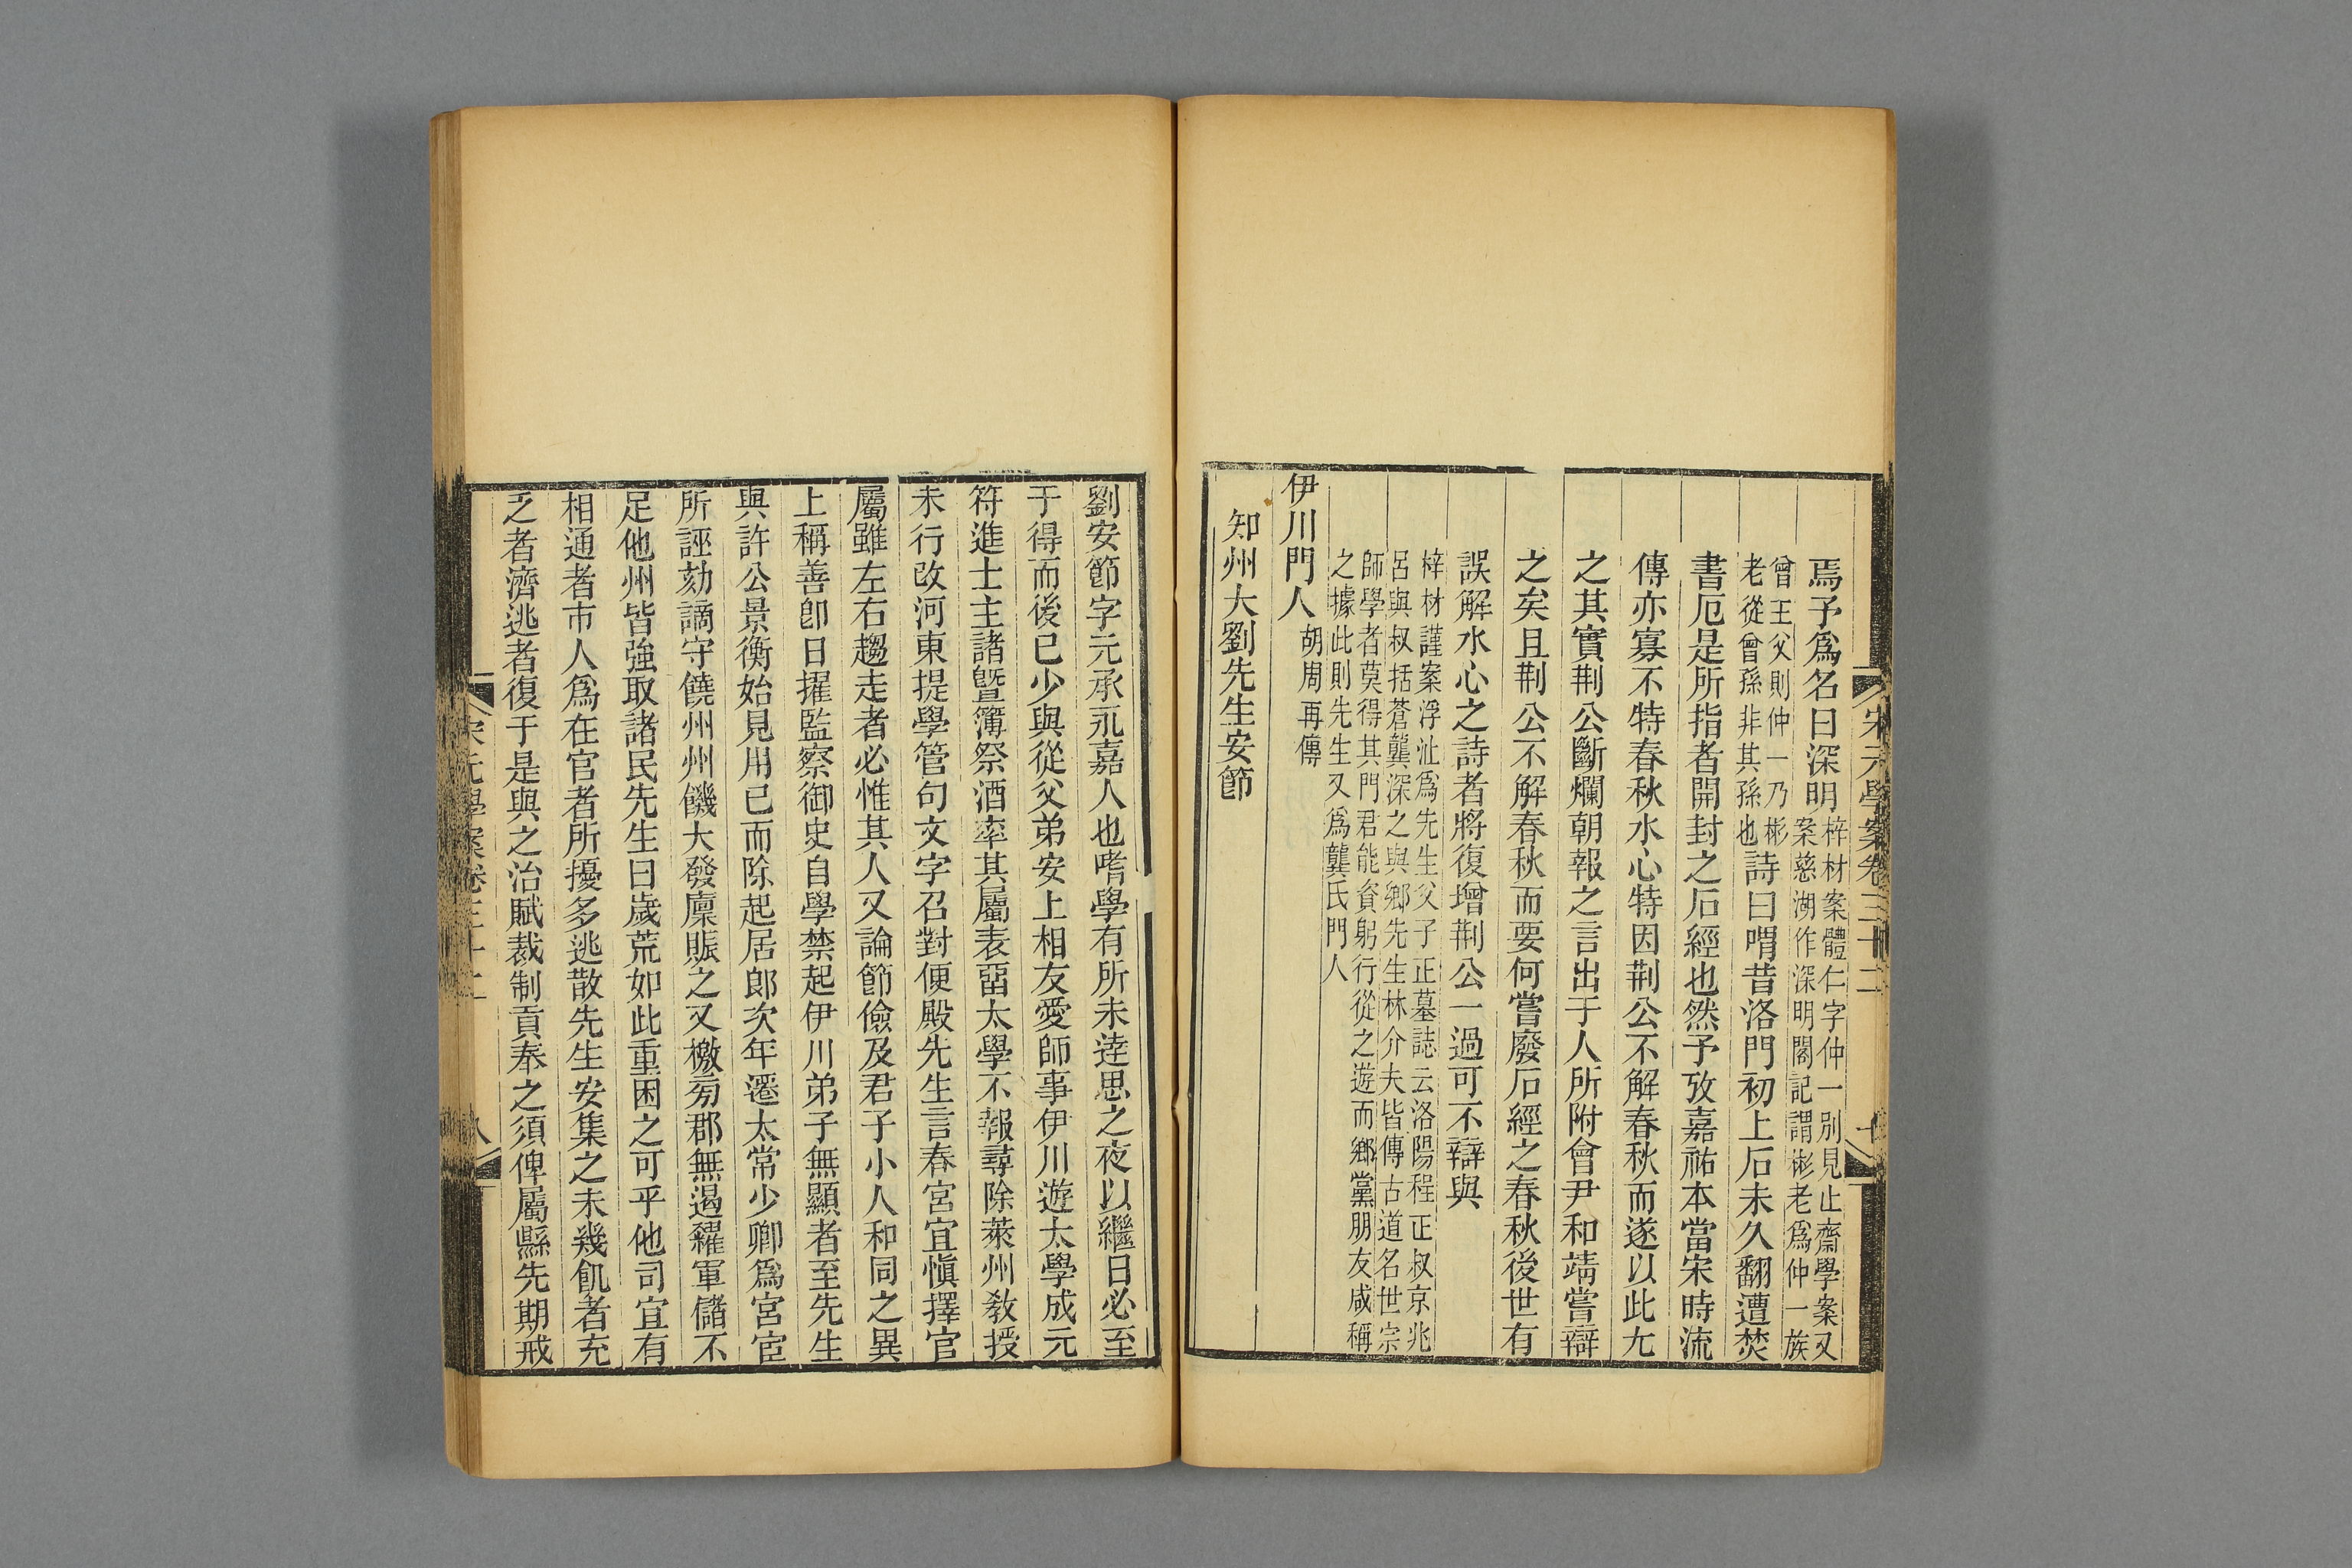 焉予爲名曰深明梓材案體仁字仲一別見止齋學案又案慈湖作深明閣記謂彬老爲仲一族
曾王父則仲一乃彬老從曾孫非其孫也詩曰喟昔洛門初上石未久翻遭焚
書厄是所指者開封之石經也然予攷嘉祐本當宋時流
傳亦寡不特春秋水心特因荆公不解春秋而遂以此尤
之其實荆公斷爛朝報之言出于人所附會尹和靖嘗辯
之矣且荆公不解春秋而要何嘗廢石經之春秋後世有
誤解水心之詩者將復增荆公一過可不辯與
梓材謹案浮沚爲先生父子正墓誌云洛陽程正叔京兆
呂與叔括蒼龔深之與鄉先生林介夫皆傳古道名世宗
師學者莫得其門君能資躬行從之遊而鄉黨朋友咸稱
之據此則先生又爲龔氏門人
伊川門人胡周再傳
知州大劉先生安節
宋元學案卷三十二
劉安節字元承永嘉人也嗜學有所未達思之夜以繼日必至
于得而後已少與從父弟安上相友愛師事伊川遊太學成元
符進士主諸暨簿祭酒率其屬表留太學不報尋除萊州敎授
未行改河東提學管句文字召對便殿先生言春宮宜愼擇官
屬雖左右趨走者必惟其人又論節儉及君子小人和同之異
上稱善卽日擢監察御史自學禁起伊川弟子無顯者至先生
與許公景衡始見用已而除起居郎次年遷太常少卿爲宮宦
所誣劾謫守饒州州饑大發廩賑之又檄旁郡無遏糴軍儲不
足他州皆強取諸民先生曰歲荒如此重困之可乎他司宜有
相通者市人爲在官者所擾多逃散先生安集之未幾飢者充
乏者濟逃者復于是與之治賦裁制貢奉之須俾屬縣先期戒
宋元學案卷三十二
八